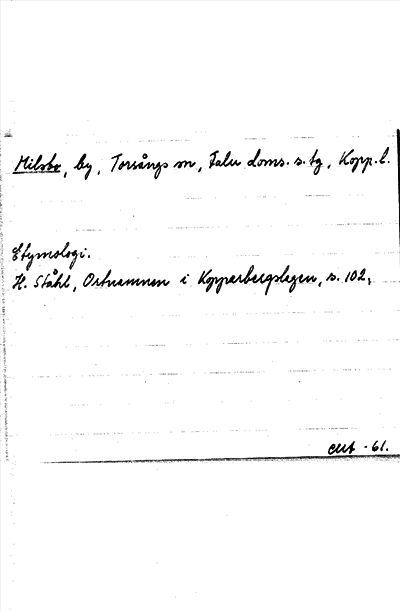 Milsbo, by, Torsångs sn, Falu doms. s. tg, Kopp. l.
Etymologi.
H. Ståhl, Ortnamnen i Kopparbergslagen, s. 102,
-61.